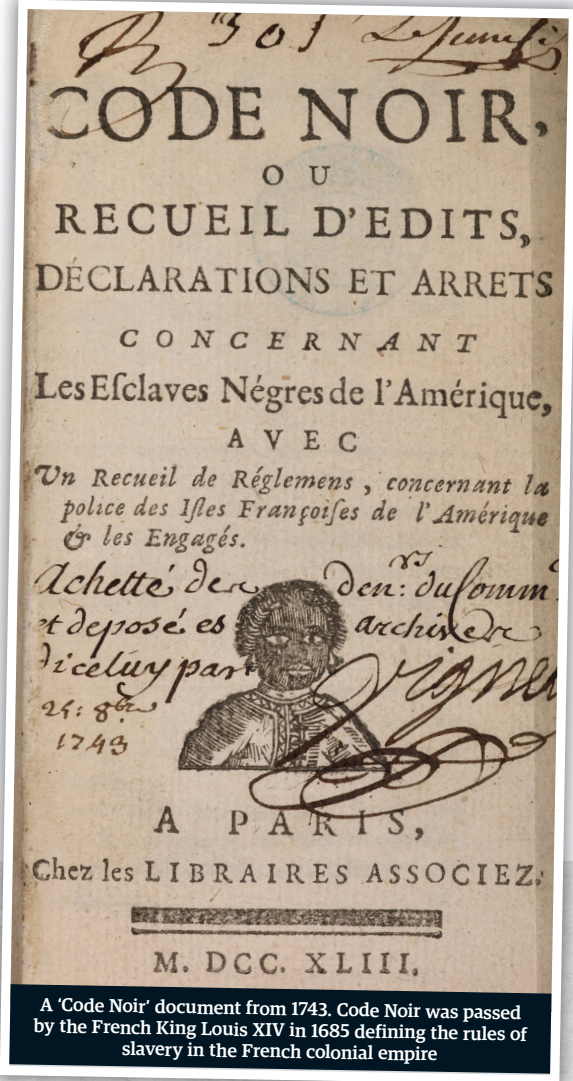 303
CODE NOIR,
OU
RECUEIL D'EDITS,
DÉCLARATIONS ET ARRETS
CONCERNANT
Les Eſclaves Négres de l'Amérique,
AVEC
Un Recueil de Réglemens, concernant la
police des Iſles Françoiſes de l'Amérique
& les Engagés.
Achetté des den: du Comm
et deposé es archives
diceluy par
25: 8bre
1743
A PARIS,
Chez les LIBRAIRES ASSOCIEZ.
M. DCC. XLIII.
A ‘Code Noir’ document from 1743. Code Noir was passed
by the French King Louis XIV in 1685 defining the rules of
slavery in the French colonial empire